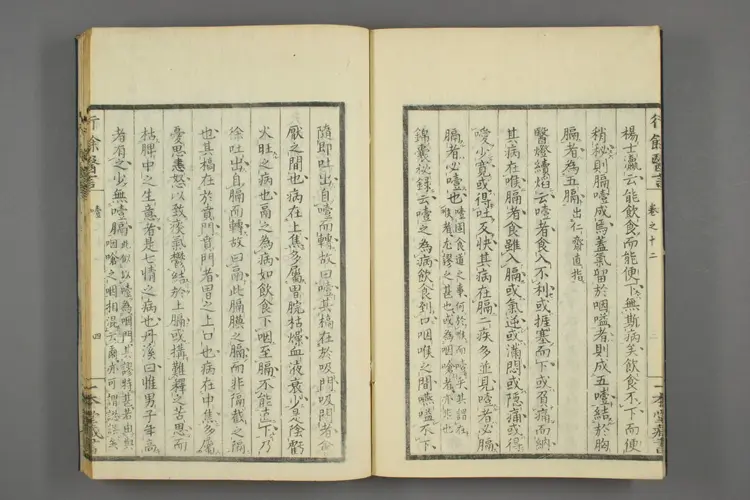 行餘醫言 卷之十二 一本堂藏書
楊士瀛云能飲食而能便下無斯病矣飲食不下而便
稍秘則膈噎成焉蓋氣留於咽嗌者則成五噎結於胸
膈者為五膈出仁齋直指
醫燈續焰云噎者食入不利或捱塞而下或劄痛而納
其病在喉膈者食雖入膈或氣逆或滿悶或隱痛或得
噯少寬或得吐反快其病在膈二疾多並見噎者必膈
膈者必噎也
錦囊秘録云噎之為病飲食到口咽喉之間嚥嗌不下
隨即吐出自噎而轉故曰噎其槁在於吸門吸門者會
厭之間也病在上焦多屬胃脘枯燥血液衰少是陰虧
火旺之病也膈之為病如飲食下咽至膈不能直下乃
徐吐出自膈而轉故曰膈此膈膜之膈而非隔截之隔
也其槁在於賁門賁門者胃之上口也病在中焦多屬
憂思恚怒以致痰氣鬱結於上膈或搆難釋之苦思而
枯脾中之生意者是七情之病也丹溪曰惟男子年高
者有之少無噎膈
行餘醫言 噎 四 一本堂藏書